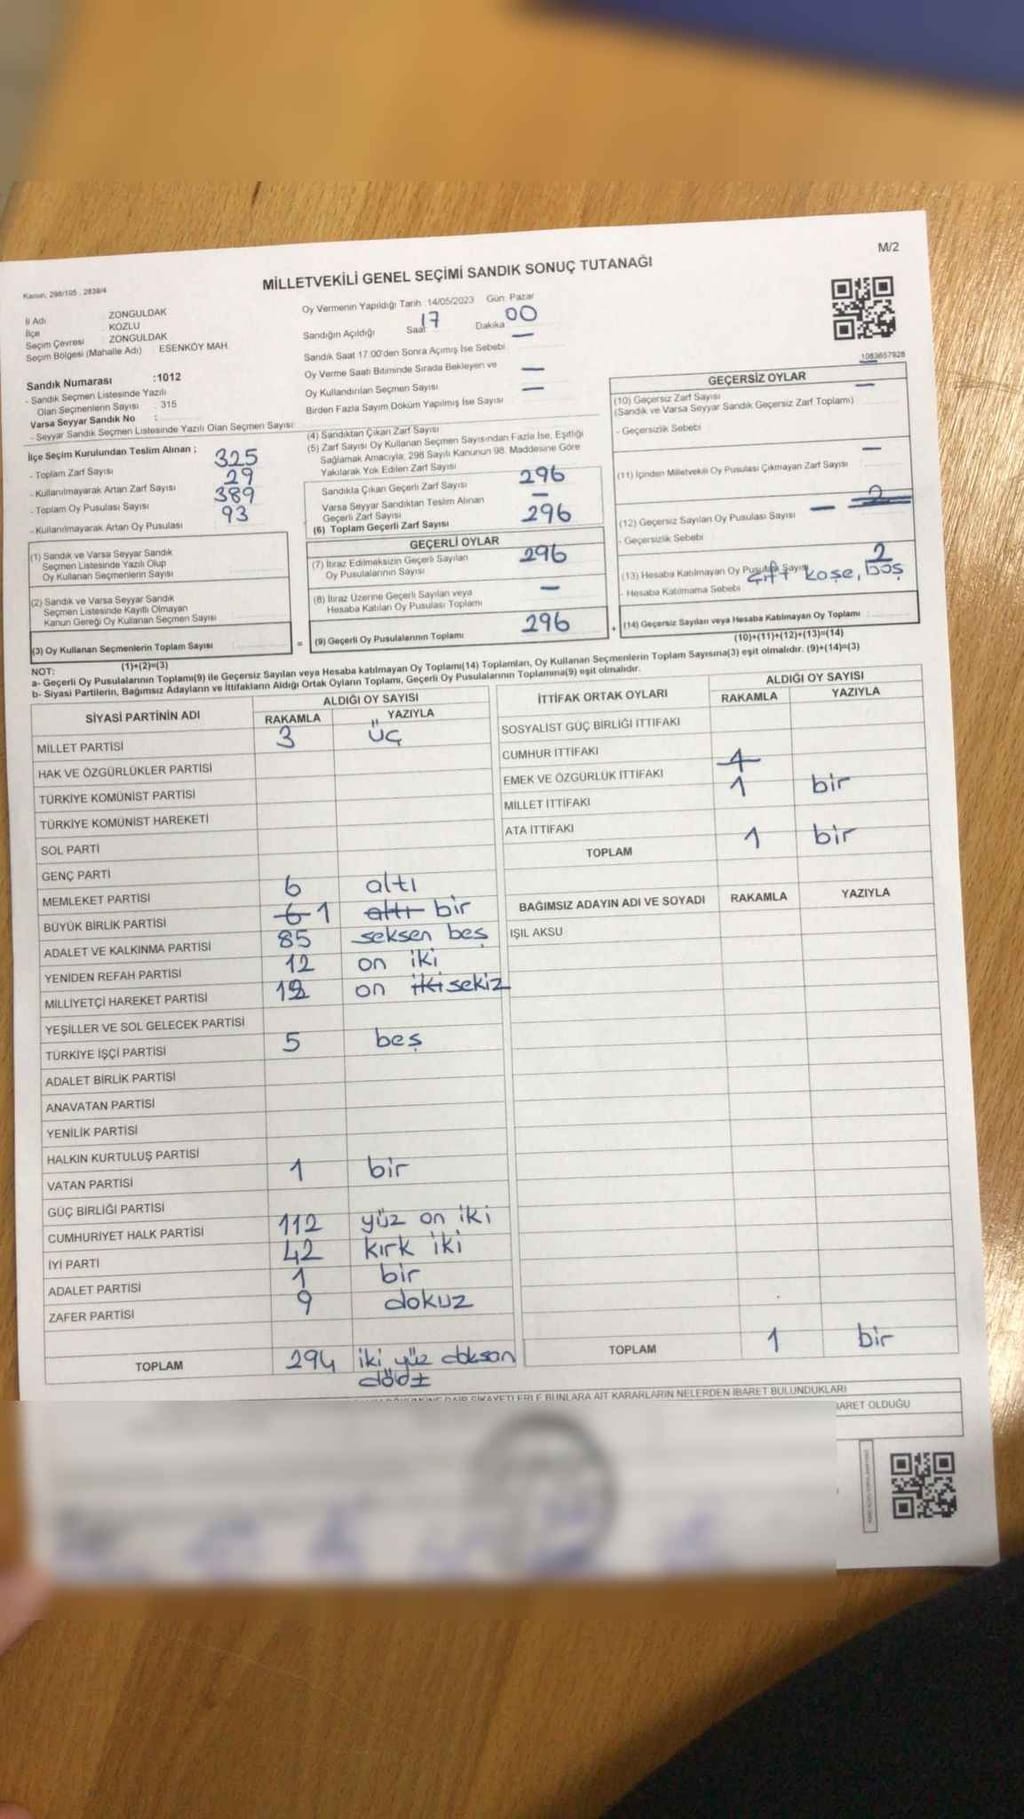 M/2
MİLLETVEKİLİ GENEL SEÇİMİ SANDIK SONUÇ TUTANAĞI
Kanun, 298/105 , 2839/4
İl Adı ZONGULDAK
İlçe KOZLU
Seçim Çevresi ZONGULDAK
Seçim Bölgesi (Mahalle Adı) ESENKÖY MAH.
Oy Vermenin Yapıldığı Tarih :14/05/2023 Gün: Pazar
Sandığın Açıldığı Saat 17 Dakika 00
Sandık Saat 17.00'den Sonra Açımış İse Sebebi —
Oy Verme Saati Bitiminde Sırada Bekleyen ve
Oy Kullandırılan Seçmen Sayısı —
Birden Fazla Sayım Döküm Yapılmış İse Sayısı —
Sandık Numarası :1012
- Sandık Seçmen Listesinde Yazılı
Olan Seçmenlerin Sayısı : 315
Varsa Seyyar Sandık No :
- Seyyar Sandık Seçmen Listesinde Yazılı Olan Seçmen Sayısı:
İlçe Seçim Kurulundan Teslim Alınan ;
- Toplam Zarf Sayısı 325
- Kullanılmayarak Artan Zarf Sayısı 29
- Toplam Oy Pusulası Sayısı 389
- Kullanılmayarak Artan Oy Pusulası 93
(1) Sandık ve Varsa Seyyar Sandık
Seçmen Listesinde Yazılı Olup
Oy Kullanan Seçmenlerin Sayısı
(2) Sandık ve Varsa Seyyar Sandık
Seçmen Listesinde Kayıtlı Olmayan
Kanun Gereği Oy Kullanan Seçmen Sayısı
(3) Oy Kullanan Seçmenlerin Toplam Sayısı
(1)+(2)=(3)
(4) Sandıktan Çıkan Zarf Sayısı
(5) Zarf Sayısı Oy Kullanan Seçmen Sayısından Fazla İse, Eşitliği
Sağlamak Amacıyla; 298 Sayılı Kanunun 98. Maddesine Göre
Yakılarak Yok Edilen Zarf Sayısı
Sandıkta Çıkan Geçerli Zarf Sayısı 296
Varsa Seyyar Sandıktan Teslim Alınan
Geçerli Zarf Sayısı —
(6) Toplam Geçerli Zarf Sayısı 296
GEÇERLİ OYLAR
(7) İtiraz Edilmeksizin Geçerli Sayılan
Oy Pusulalarının Sayısı 296
(8) İtiraz Üzerine Geçerli Sayılan veya
Hesaba Katılan Oy Pusulası Toplamı —
= (9) Geçerli Oy Pusulalarının Toplamı 296 +
1083657928
GEÇERSİZ OYLAR
(10) Geçersiz Zarf Sayısı —
(Sandık ve Varsa Seyyar Sandık Geçersiz Zarf Toplamı)
- Geçersizlik Sebebi
(11) İçinden Milletvekili Oy Pusulası Çıkmayan Zarf Sayısı —
(12) Geçersiz Sayılan Oy Pusulası Sayısı — 2
- Geçersizlik Sebebi
(13) Hesaba Katılmayan Oy Pusulası Sayısı 2
- Hesaba Katılmama Sebebi çift köşe, boş
(14) Geçersiz Sayılan veya Hesaba Katılmayan Oy Toplamı
(10)+(11)+(12)+(13)=(14)
NOT:
a- Geçerli Oy Pusulalarının Toplamı(9) ile Geçersiz Sayılan veya Hesaba katılmayan Oy Toplamı(14) Toplamları, Oy Kullanan Seçmenlerin Toplam Sayısına(3) eşit olmalıdır. (9)+(14)=(3)
b- Siyasi Partilerin, Bağımsız Adayların ve İttifakların Aldığı Ortak Oyların Toplamı, Geçerli Oy Pusulalarının Toplamına(9) eşit olmalıdır.
SİYASİ PARTİNİN ADI ALDIĞI OY SAYISI
RAKAMLA YAZIYLA
MİLLET PARTİSİ 3 üç
HAK VE ÖZGÜRLÜKLER PARTİSİ
TÜRKİYE KOMÜNİST PARTİSİ
TÜRKİYE KOMÜNİST HAREKETİ
SOL PARTİ
GENÇ PARTİ
MEMLEKET PARTİSİ 6 altı
BÜYÜK BİRLİK PARTİSİ 6 1 altı bir
ADALET VE KALKINMA PARTİSİ 85 seksen beş
YENİDEN REFAH PARTİSİ 12 on iki
MİLLİYETÇİ HAREKET PARTİSİ 18 on iki sekiz
YEŞİLLER VE SOL GELECEK PARTİSİ
TÜRKİYE İŞÇİ PARTİSİ 5 beş
ADALET BİRLİK PARTİSİ
ANAVATAN PARTİSİ
YENİLİK PARTİSİ
HALKIN KURTULUŞ PARTİSİ
VATAN PARTİSİ 1 bir
GÜÇ BİRLİĞİ PARTİSİ
CUMHURİYET HALK PARTİSİ 112 yüz on iki
İYİ PARTİ 42 kırk iki
ADALET PARTİSİ 1 bir
ZAFER PARTİSİ 9 dokuz
TOPLAM 294 iki yüz doksan
dödt
İTTİFAK ORTAK OYLARI ALDIĞI OY SAYISI
RAKAMLA YAZIYLA
SOSYALİST GÜÇ BİRLİĞİ İTTİFAKI
CUMHUR İTTİFAKI
EMEK VE ÖZGÜRLÜK İTTİFAKI 1
MİLLET İTTİFAKI 1 bir
ATA İTTİFAKI
TOPLAM 1 bir
BAĞIMSIZ ADAYIN ADI VE SOYADI RAKAMLA YAZIYLA
IŞIL AKSU
TOPLAM 1 bir
BUNLARA AİT KARARLARIN NELERDEN İBARET BULUNDUKLARI
OLDUĞU